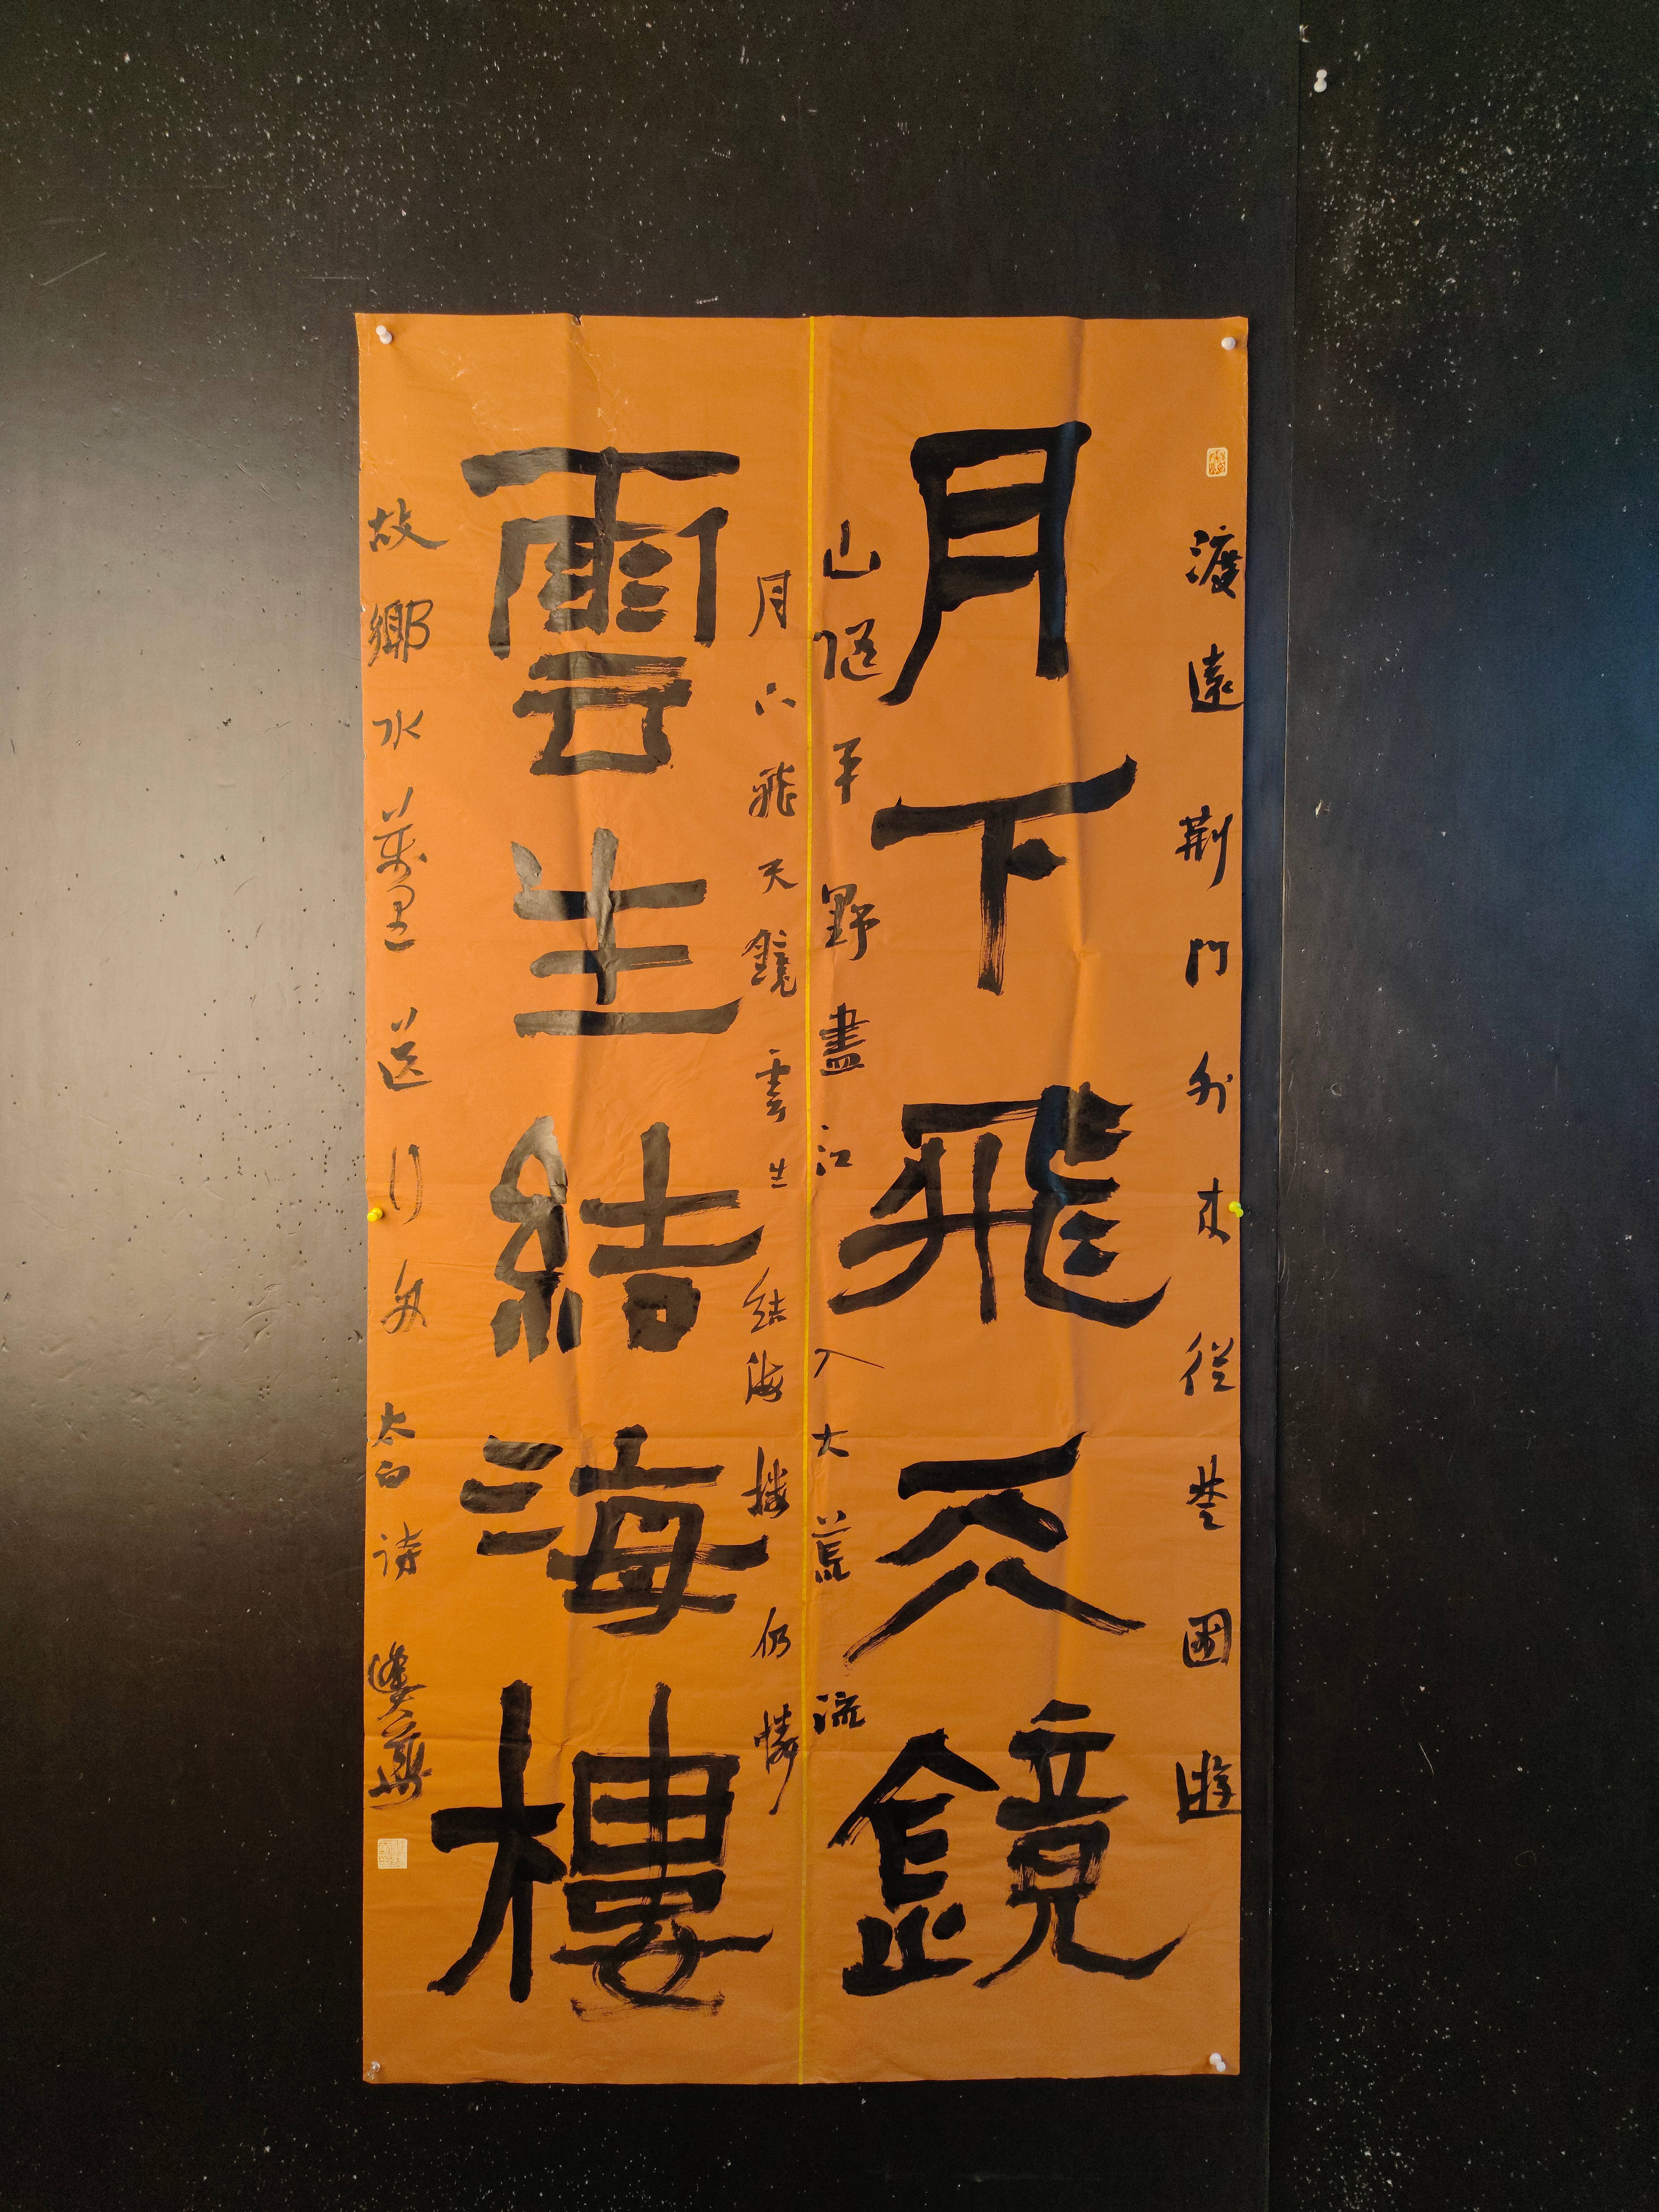 渡遠荆門外来從楚國遊
月下飛天鏡
山隨平野盡江入大荒流
月下飛天鏡雲生結海樓仍憐
雲生結海樓
故鄉水萬里送行舟太白詩